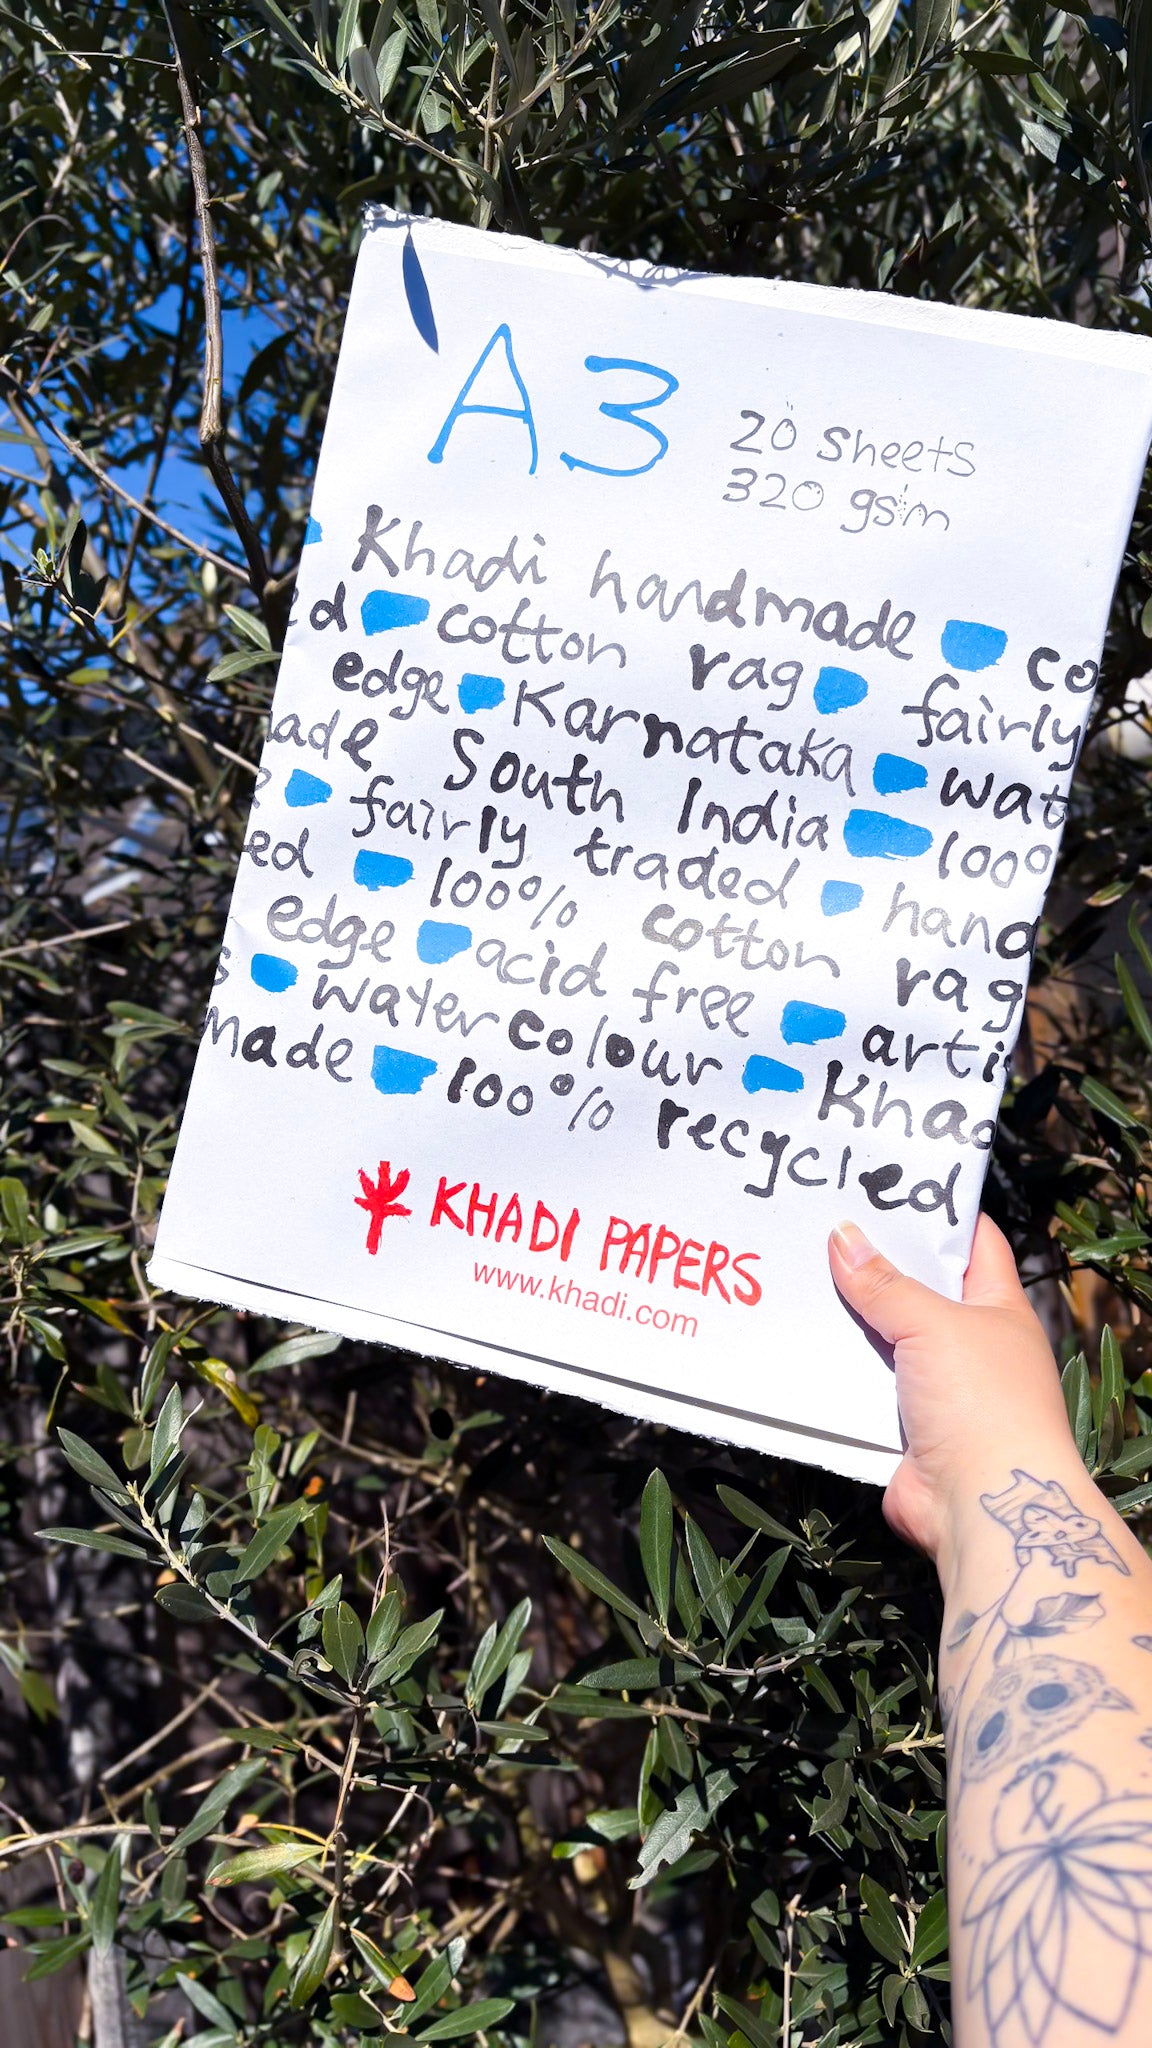 A3
20 sheets
320 gsm
Khadi handmade co
ed cotton rag fairly
edge Karnataka wat
ade South India 100%
fairly traded hand
ed 100% cotton rag
edge acid free arti
s watercolour Khad
made 100% recycled
KHADI PAPERS
www.khadi.com